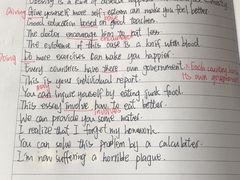 Giving Give yourself more self-esteem can make you feel better.
Good education based on good teachers.
The doctor encourage him to eat less.
The evidence of this case is a knife with blood.
Doing Do more exercises can make you happier.
Every countries have there own government. Each country has its own government
This is your individual report.
You can injure yourself by eating junk food.
This essay involve how to eat better. involves
We can provide you some water.
I realize that I forget my homework.
You can solve this problem by a calculater.
I'm now suffering a horrible plague.